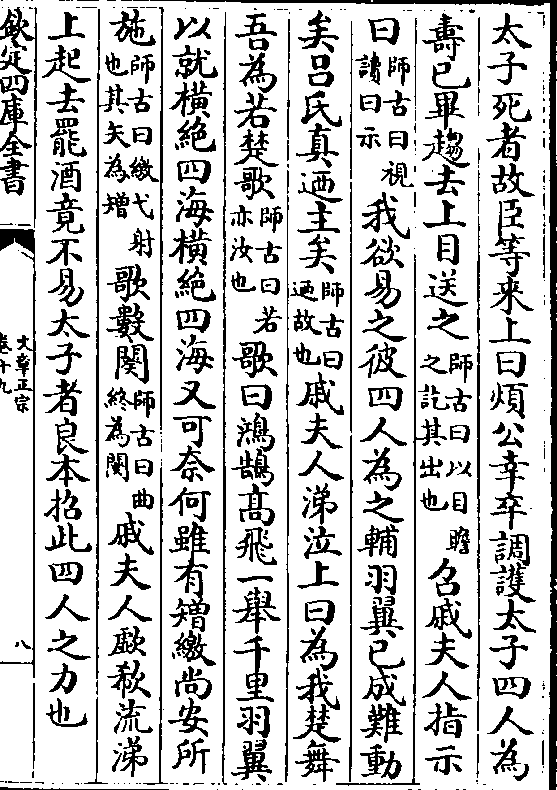 太子死者故臣等來上曰煩公幸卒調護太子四人為
壽已畢趨去上目送之師古曰以目瞻之訖其出也召戚夫人指示
曰師古曰視讀曰示我欲易之彼四人為之輔羽翼已成難動
矣呂氏真迺主矣師古曰迺故也戚夫人涕泣上曰為我楚舞
吾為若楚歌師古曰若亦汝也歌曰鴻鵠髙飛一舉千里羽翼
以就橫絶四海橫絶四海又可奈何雖有矰繳尚安所
施師古曰繳弋射也其矢為矰歌數闋師古曰曲終為闋戚夫人歔欷流涕
上起去罷酒竟不易太子者良本招此四人之力也
欽定四庫全書
文章正宗
卷十九
八